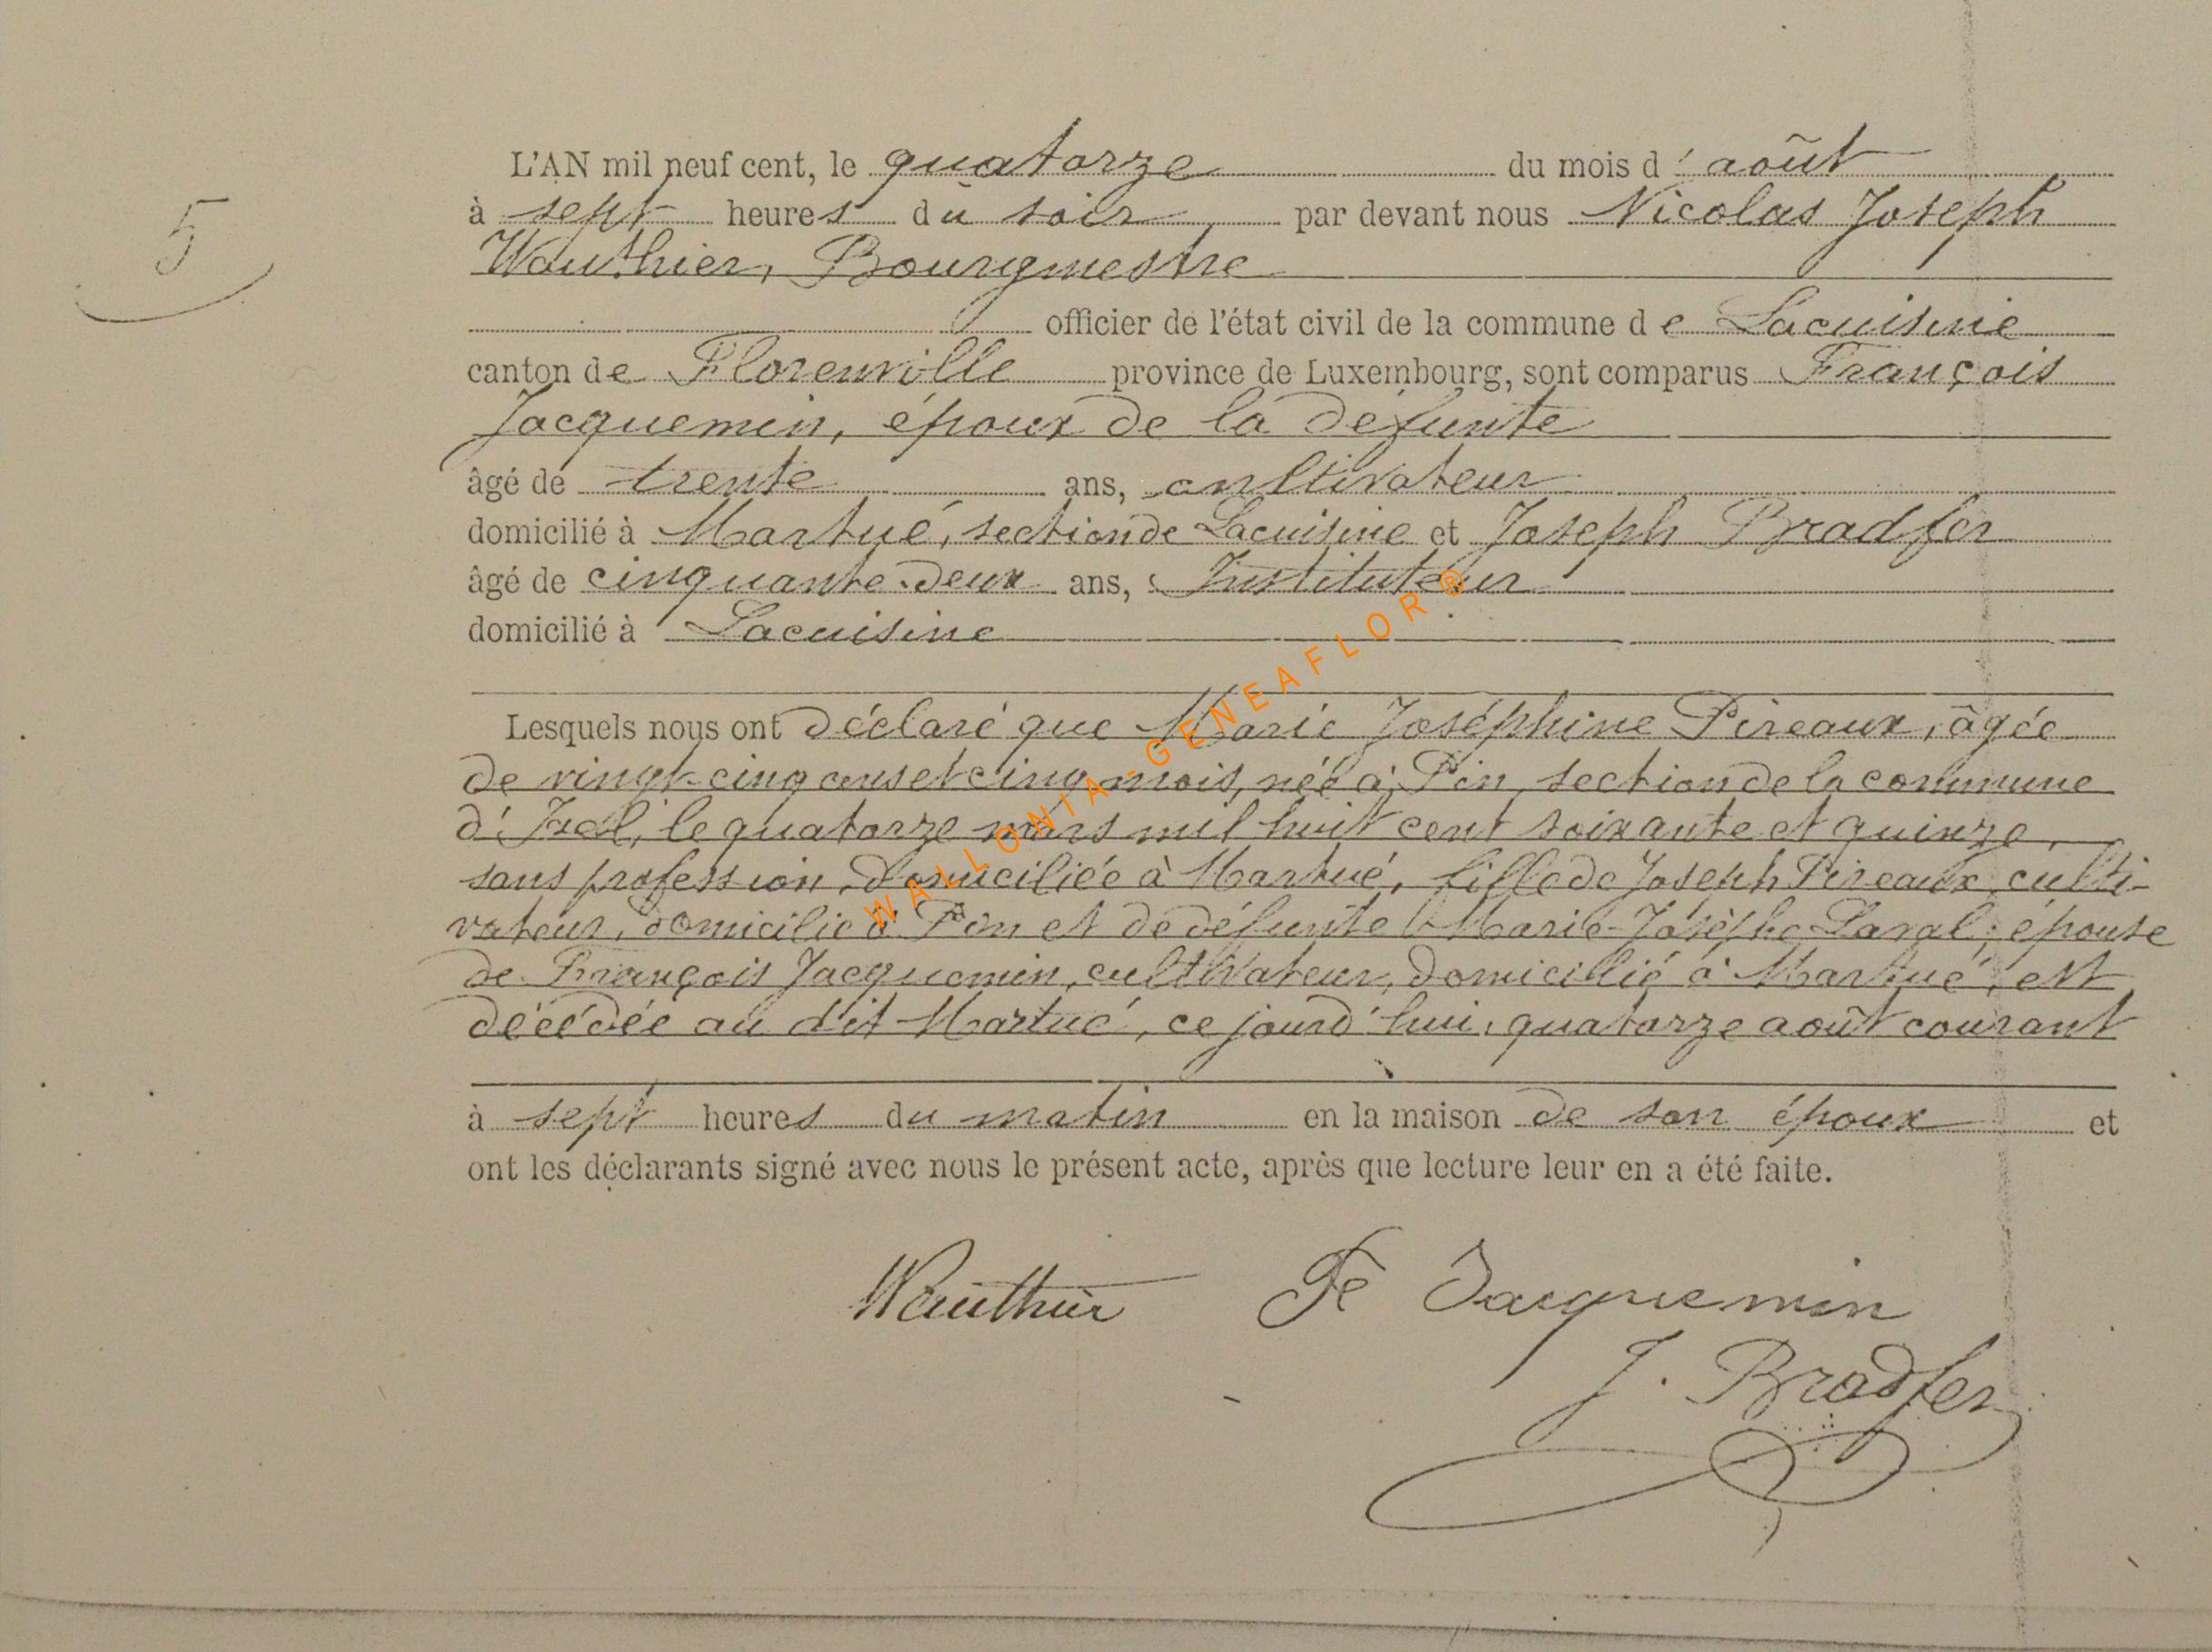 5
L'AN mil neuf cent, le quatorze du mois d'août
à sept heures du soir par devant nous Nicolas Joseph
Wauthier, Bourgmestre
officier de l'état civil de la commune de Lacuisine
canton de Florenville province de Luxembourg, sont comparus François
Jacquemin, époux de la défunte
âgé de trente ans, cultivateur
domicilié à Martué, section de Lacuisine et Joseph Bradfer
âgé de cinquante-deux ans, Instituteur
domicilié à Lacuisine
Lesquels nous ont déclaré que Marie Joséphine Pireaux, âgée
de vingt-cinq ans et cinq mois, née à Pin, section de la commune
d'Izel, le quatorze mars mil huit cent soixante et quinze,
sans profession, domiciliée à Martué, fille de Joseph Pireaux, culti-
vateur, domicilié à Pin et de défunte Marie-Josèphe Laval, épouse
de François Jacquemin, cultivateur, domicilié à Martué, est
décédée au dit Martué, ce jourd'hui, quatorze août courant
à sept heures du matin en la maison de son époux et
ont les déclarants signé avec nous le présent acte, après que lecture leur en a été faite.
Wauthier Fs Jacquemin
J. Bradfer
WALLONIA-GENEAFLOR®